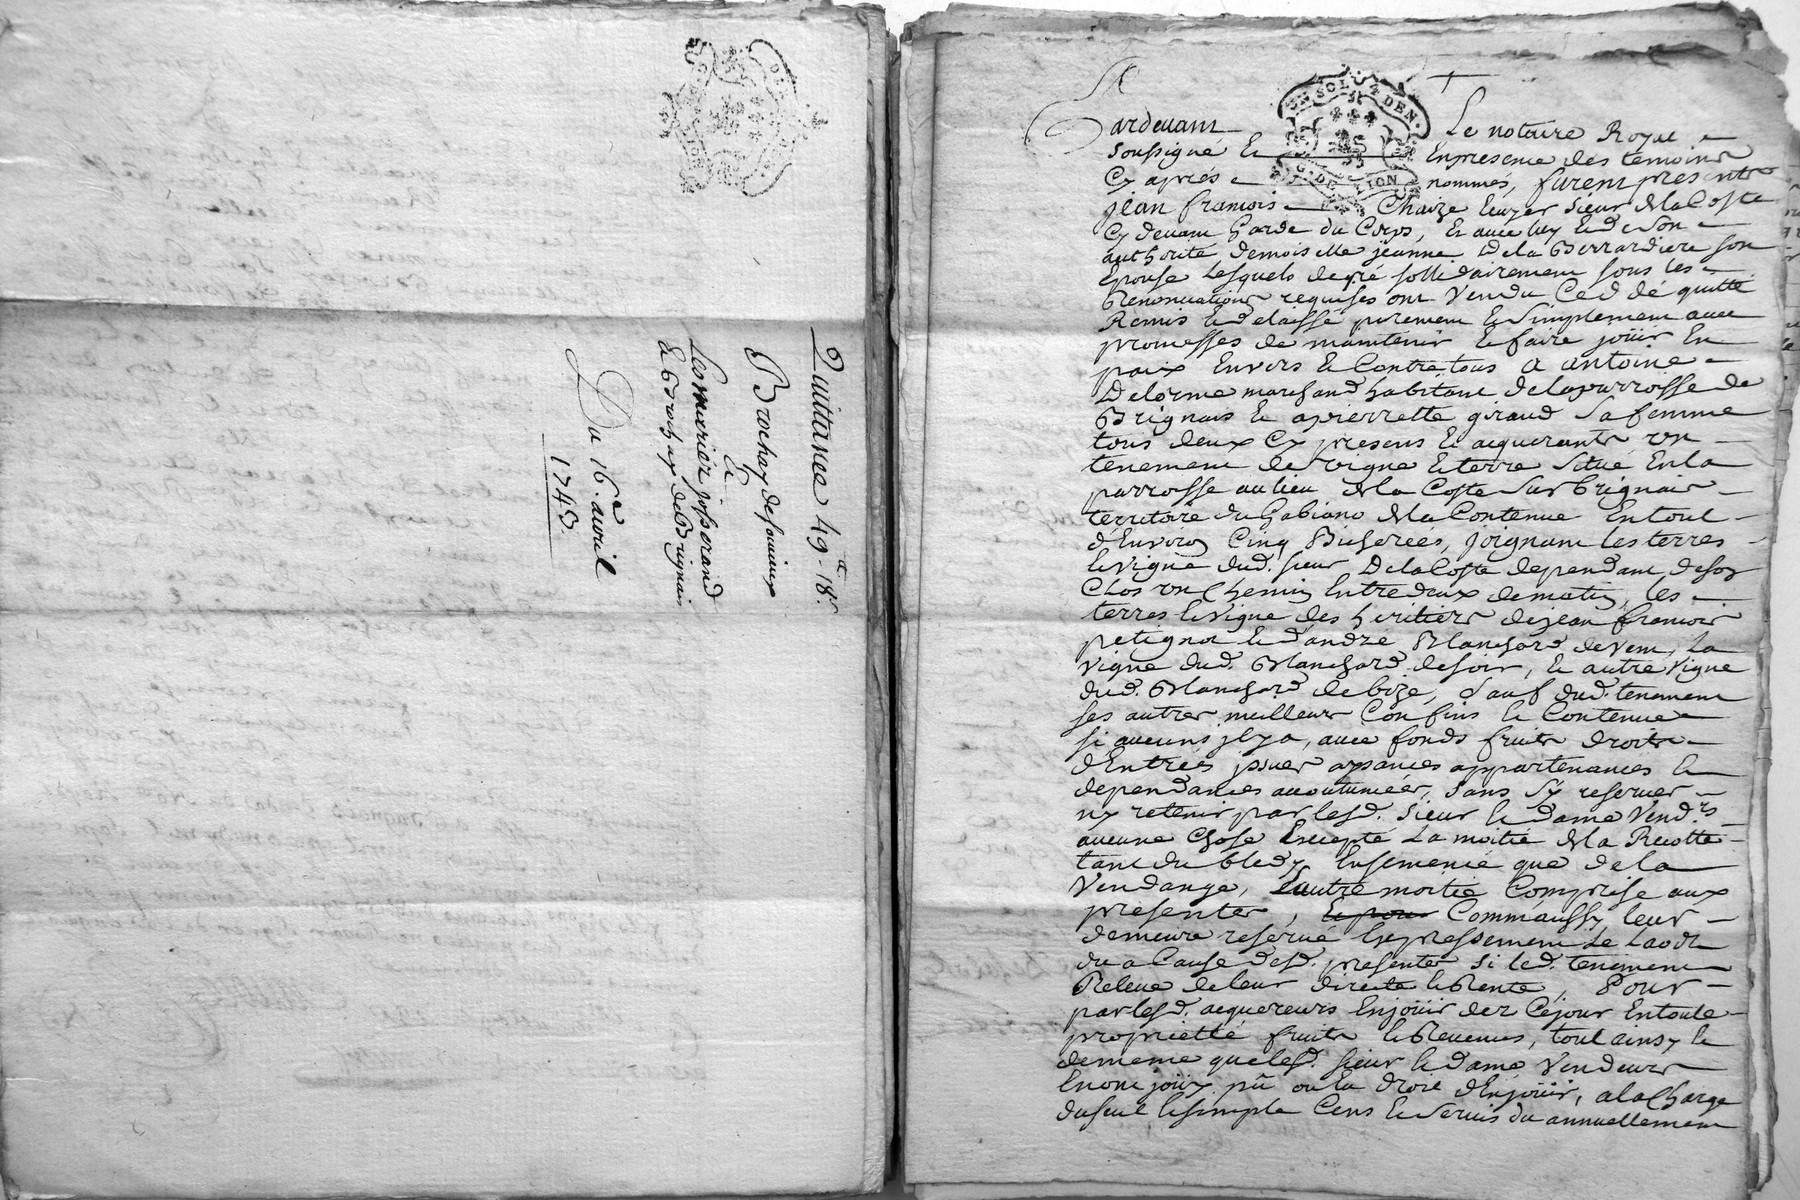 Quittance 49ᵗᵗ-18ˢ
Brochay de souuieux
a
Les mariez josserand
& Brochay de Brignais
Du 16.e auvril
1743
UN SOL 4 DEN.
G. DE LION
Pardeuant Le notaire Royal
soussigné Et En presence des temoins
Cy aprés nommés, furent presents
jean francois Chaize Ecuyer sieur de la Coste
Cy deuant Garde du Corps, Et auec luy Et de son
authorité demoiselle jeanne De la Berrardiere son
Epouse Lesquels de gré sollidairement sous les
Renonciations requises ont Vendu Ced dé quitté
Remis Et delaissé purement Et simplement auec
promesses de maintenir Et faire joüir En
paix Envers Et Contre tous a antoine
Delorme marchand habitant de la parroisse de
Brignais Et a pierrette giraud sa femme
tous deux Cy presens Et acquerants vn
tenement de vigne Et terre situé En la
parroisse au lieu de la Coste sur brignais
territoire du Gabiano de la Contenue En tout
d'Environ Cinq Bicherees, joignant les terres
Et vigne dud. sieur De la Coste dependant de son
Clos vn Chemin Entre deux de matin, les
terres Et vigne des heritiers de jean francois
petignot Et d'andré Blanchard de vent, La
vigne dud. Blanchard de soir, Et autre vigne
dud. Blanchard de bize, sauf dud. tenement
ses autres meilleurs Confins Et Contenue
si aucuns jl y a, auec fonds fruits droits
d'Entrées jssues aysances appartenances Et
dependances accoutumées, sans s'y reseruer
ny retenir par lesd. sieur Et dame Vend.rs
aucune Chose Excepté La moitié de la Recolte
tant du bled y Ensemencé que de la
Vendange, Lautre moitié Comprise aux
presentes, Et pour Comm'aussy leur
demeure reserué Expressement Le Laod
du a Cause desd. presentes si led. tenement
Releue de leur directe Et Rente, Pour
par lesd. acquereurs En joüir dez Cejour En toute
proprietté fruits Et Reuenus, tout ainsy Et
de meme que lesd. sieur Et dame Vendeurs
En ont joüy pû ou Eu droit d'En joüir, a la Charge
du seul Et simple Cens Et seruis du annuellement